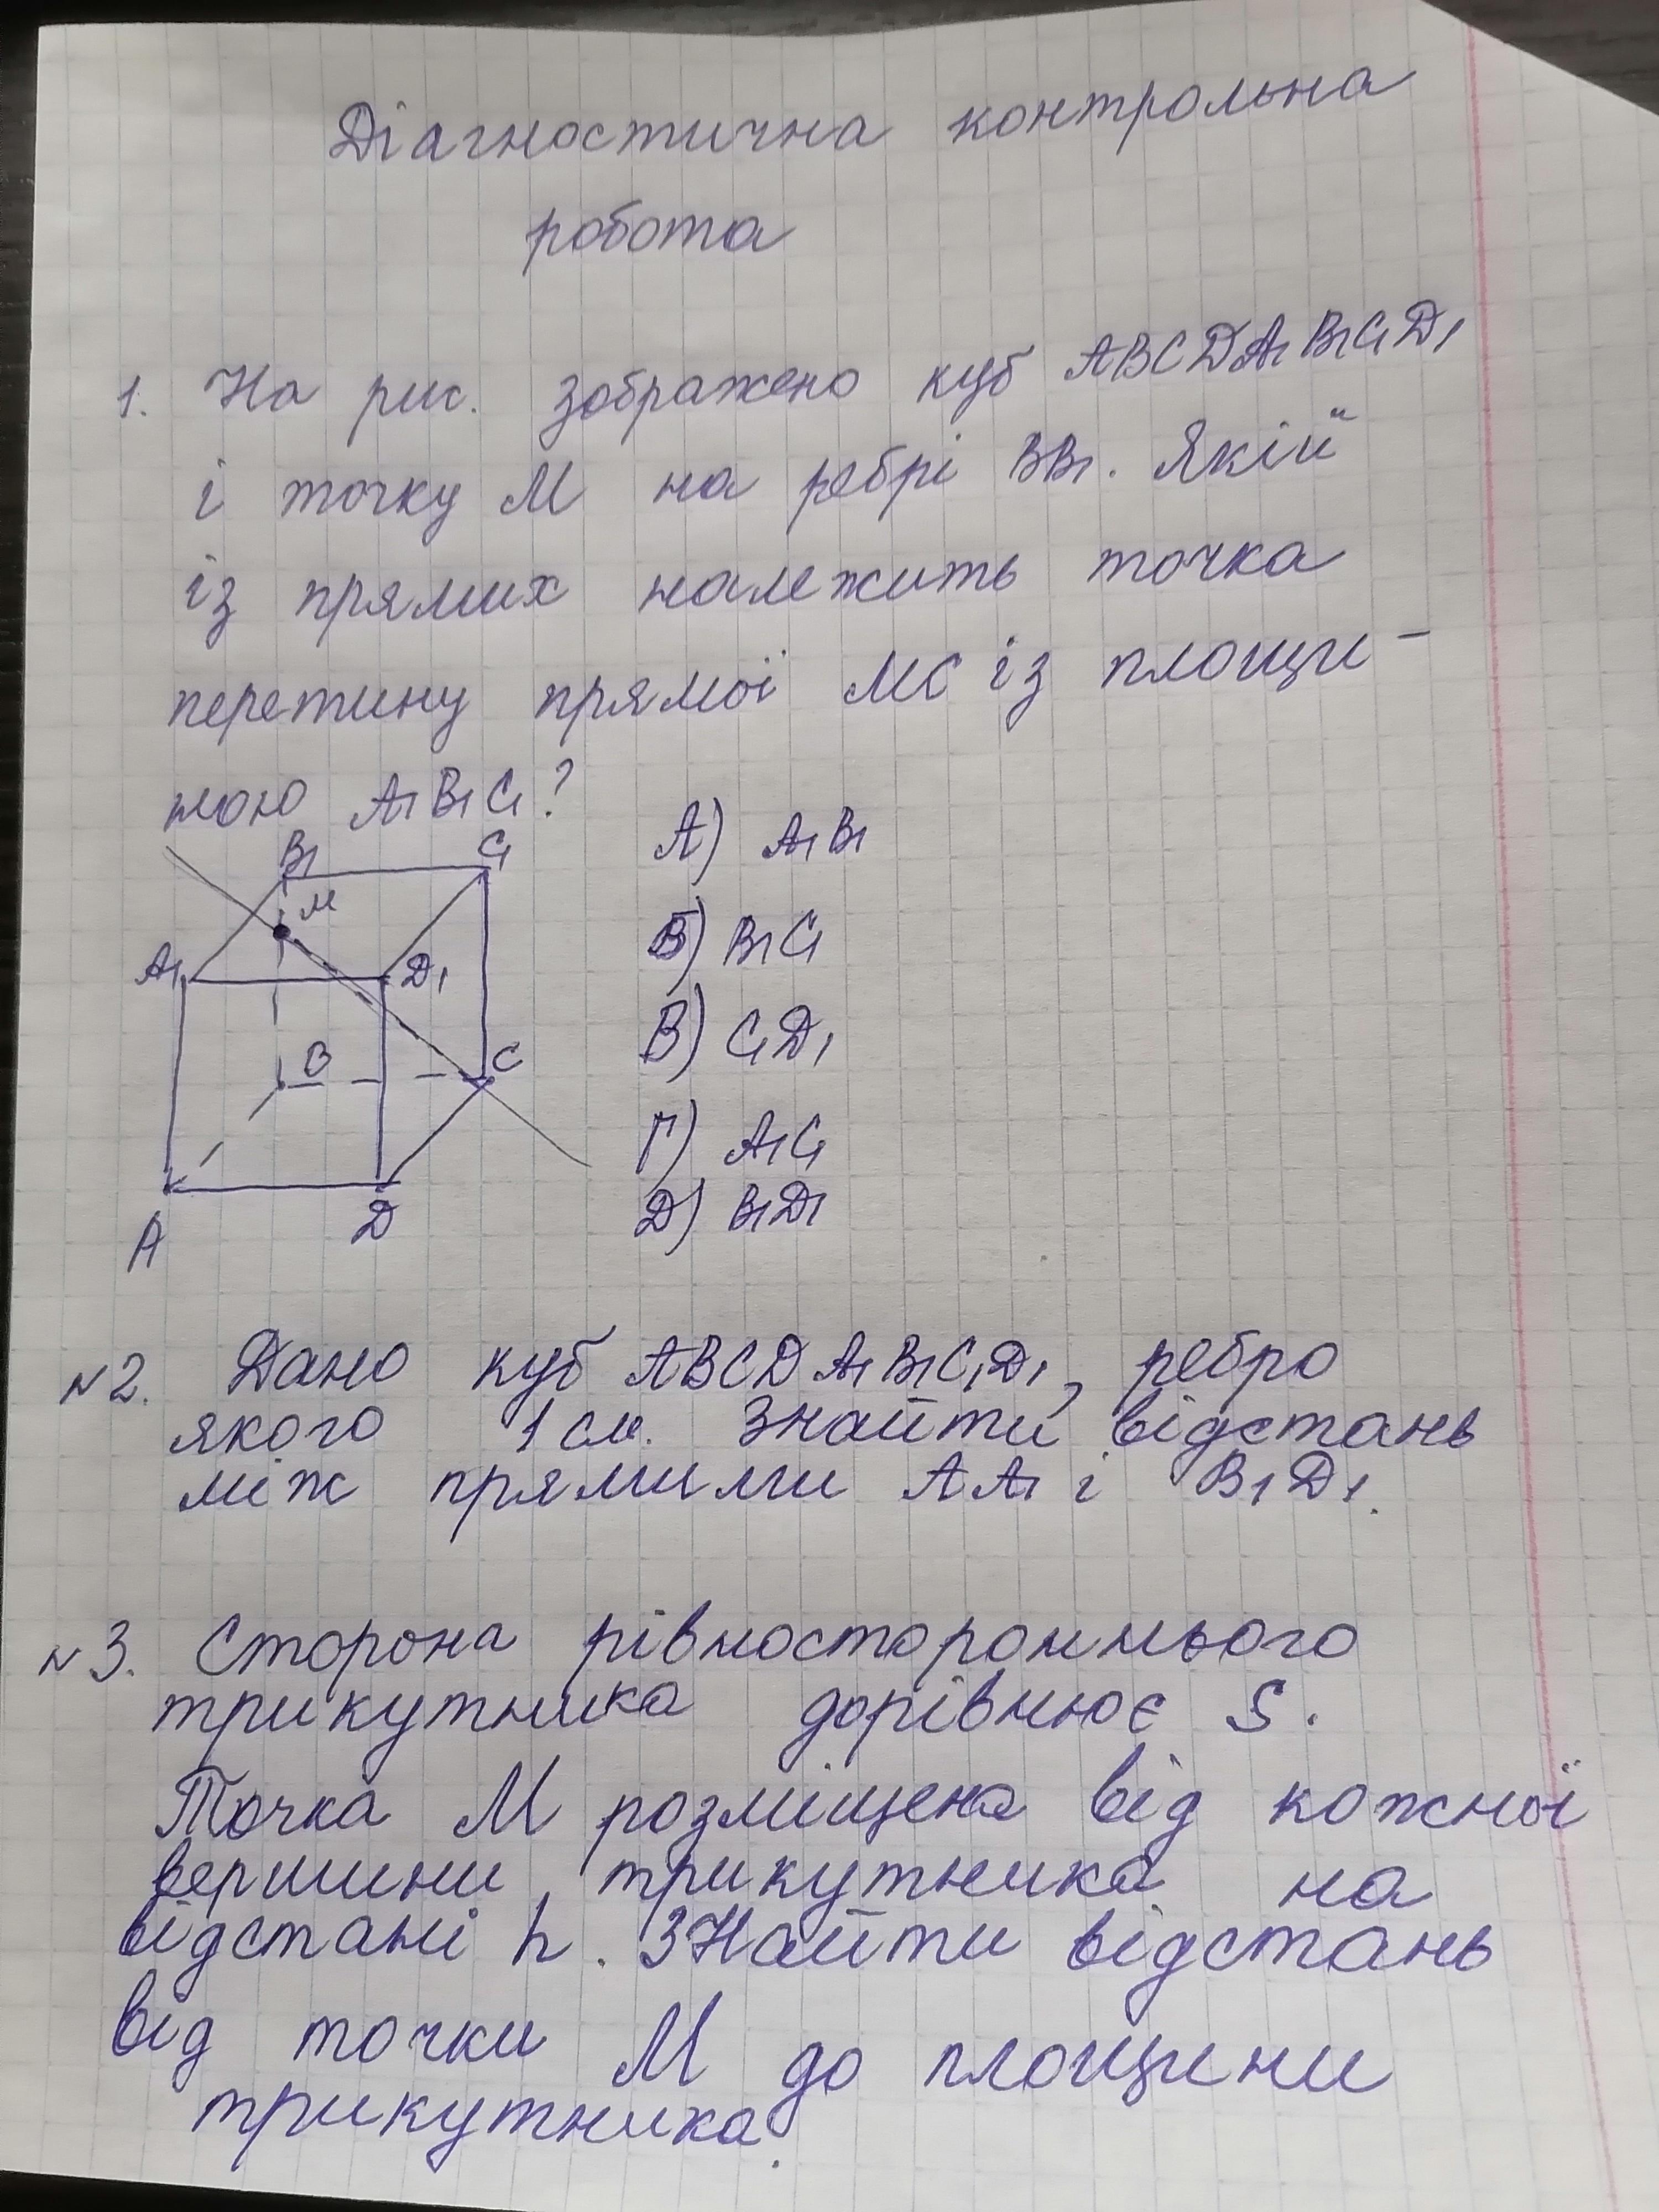 Діагностична контрольна
робота
1. На рис. зображено куб ABCDA₁B₁C₁D₁
і точку М на ребрі BB₁. Якій
із прямих належить точка
перетину прямої MC із площи-
ною A₁B₁C₁?
B₁ C₁
M
A₁ D₁
B C
A D
А) A₁B₁
Б) B₁C₁
В) C₁D₁
Г) A₁C₁
Д) B₁D₁
№2. Дано куб ABCDA₁B₁C₁D₁, ребро
якого 1 см. Знайти відстань
між прямими AA₁ і B₁D₁.
№3. Сторона рівностороннього
трикутника дорівнює S.
Точка М розміщена від кожної
вершини трикутника на
відстані h. Знайти відстань
від точки М до площини
трикутника.